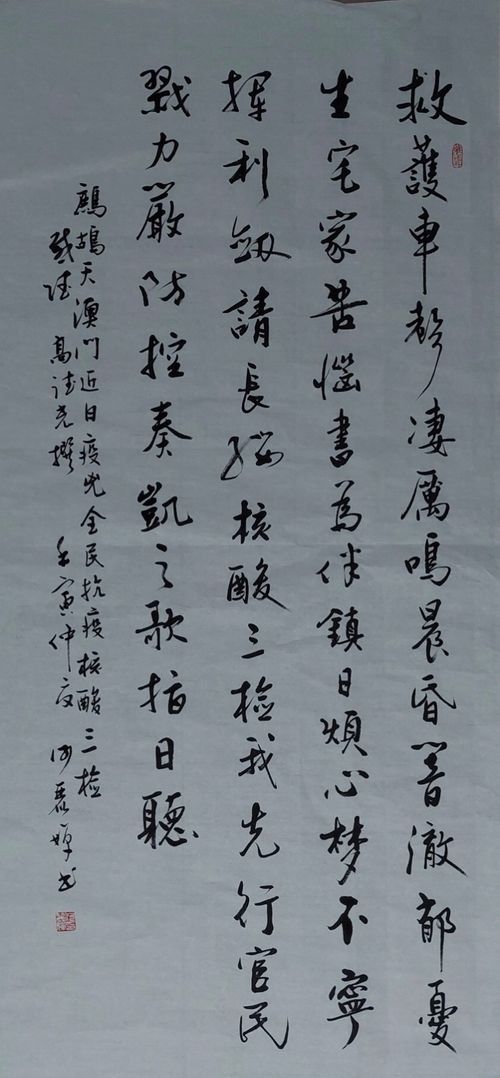 救護車聲凄厲鳴晨昏響徹郁憂
生宅家苦惱書為伴鎮日煩心梦不寧
揮利劔請長纓核酸三檢我先行官民
戮力嚴防控奏凱之歌指日聽
鷓鴣天澳門近日疫兇全民抗疫核酸三檢
感 高 撰 壬寅仲夏 何麗 書